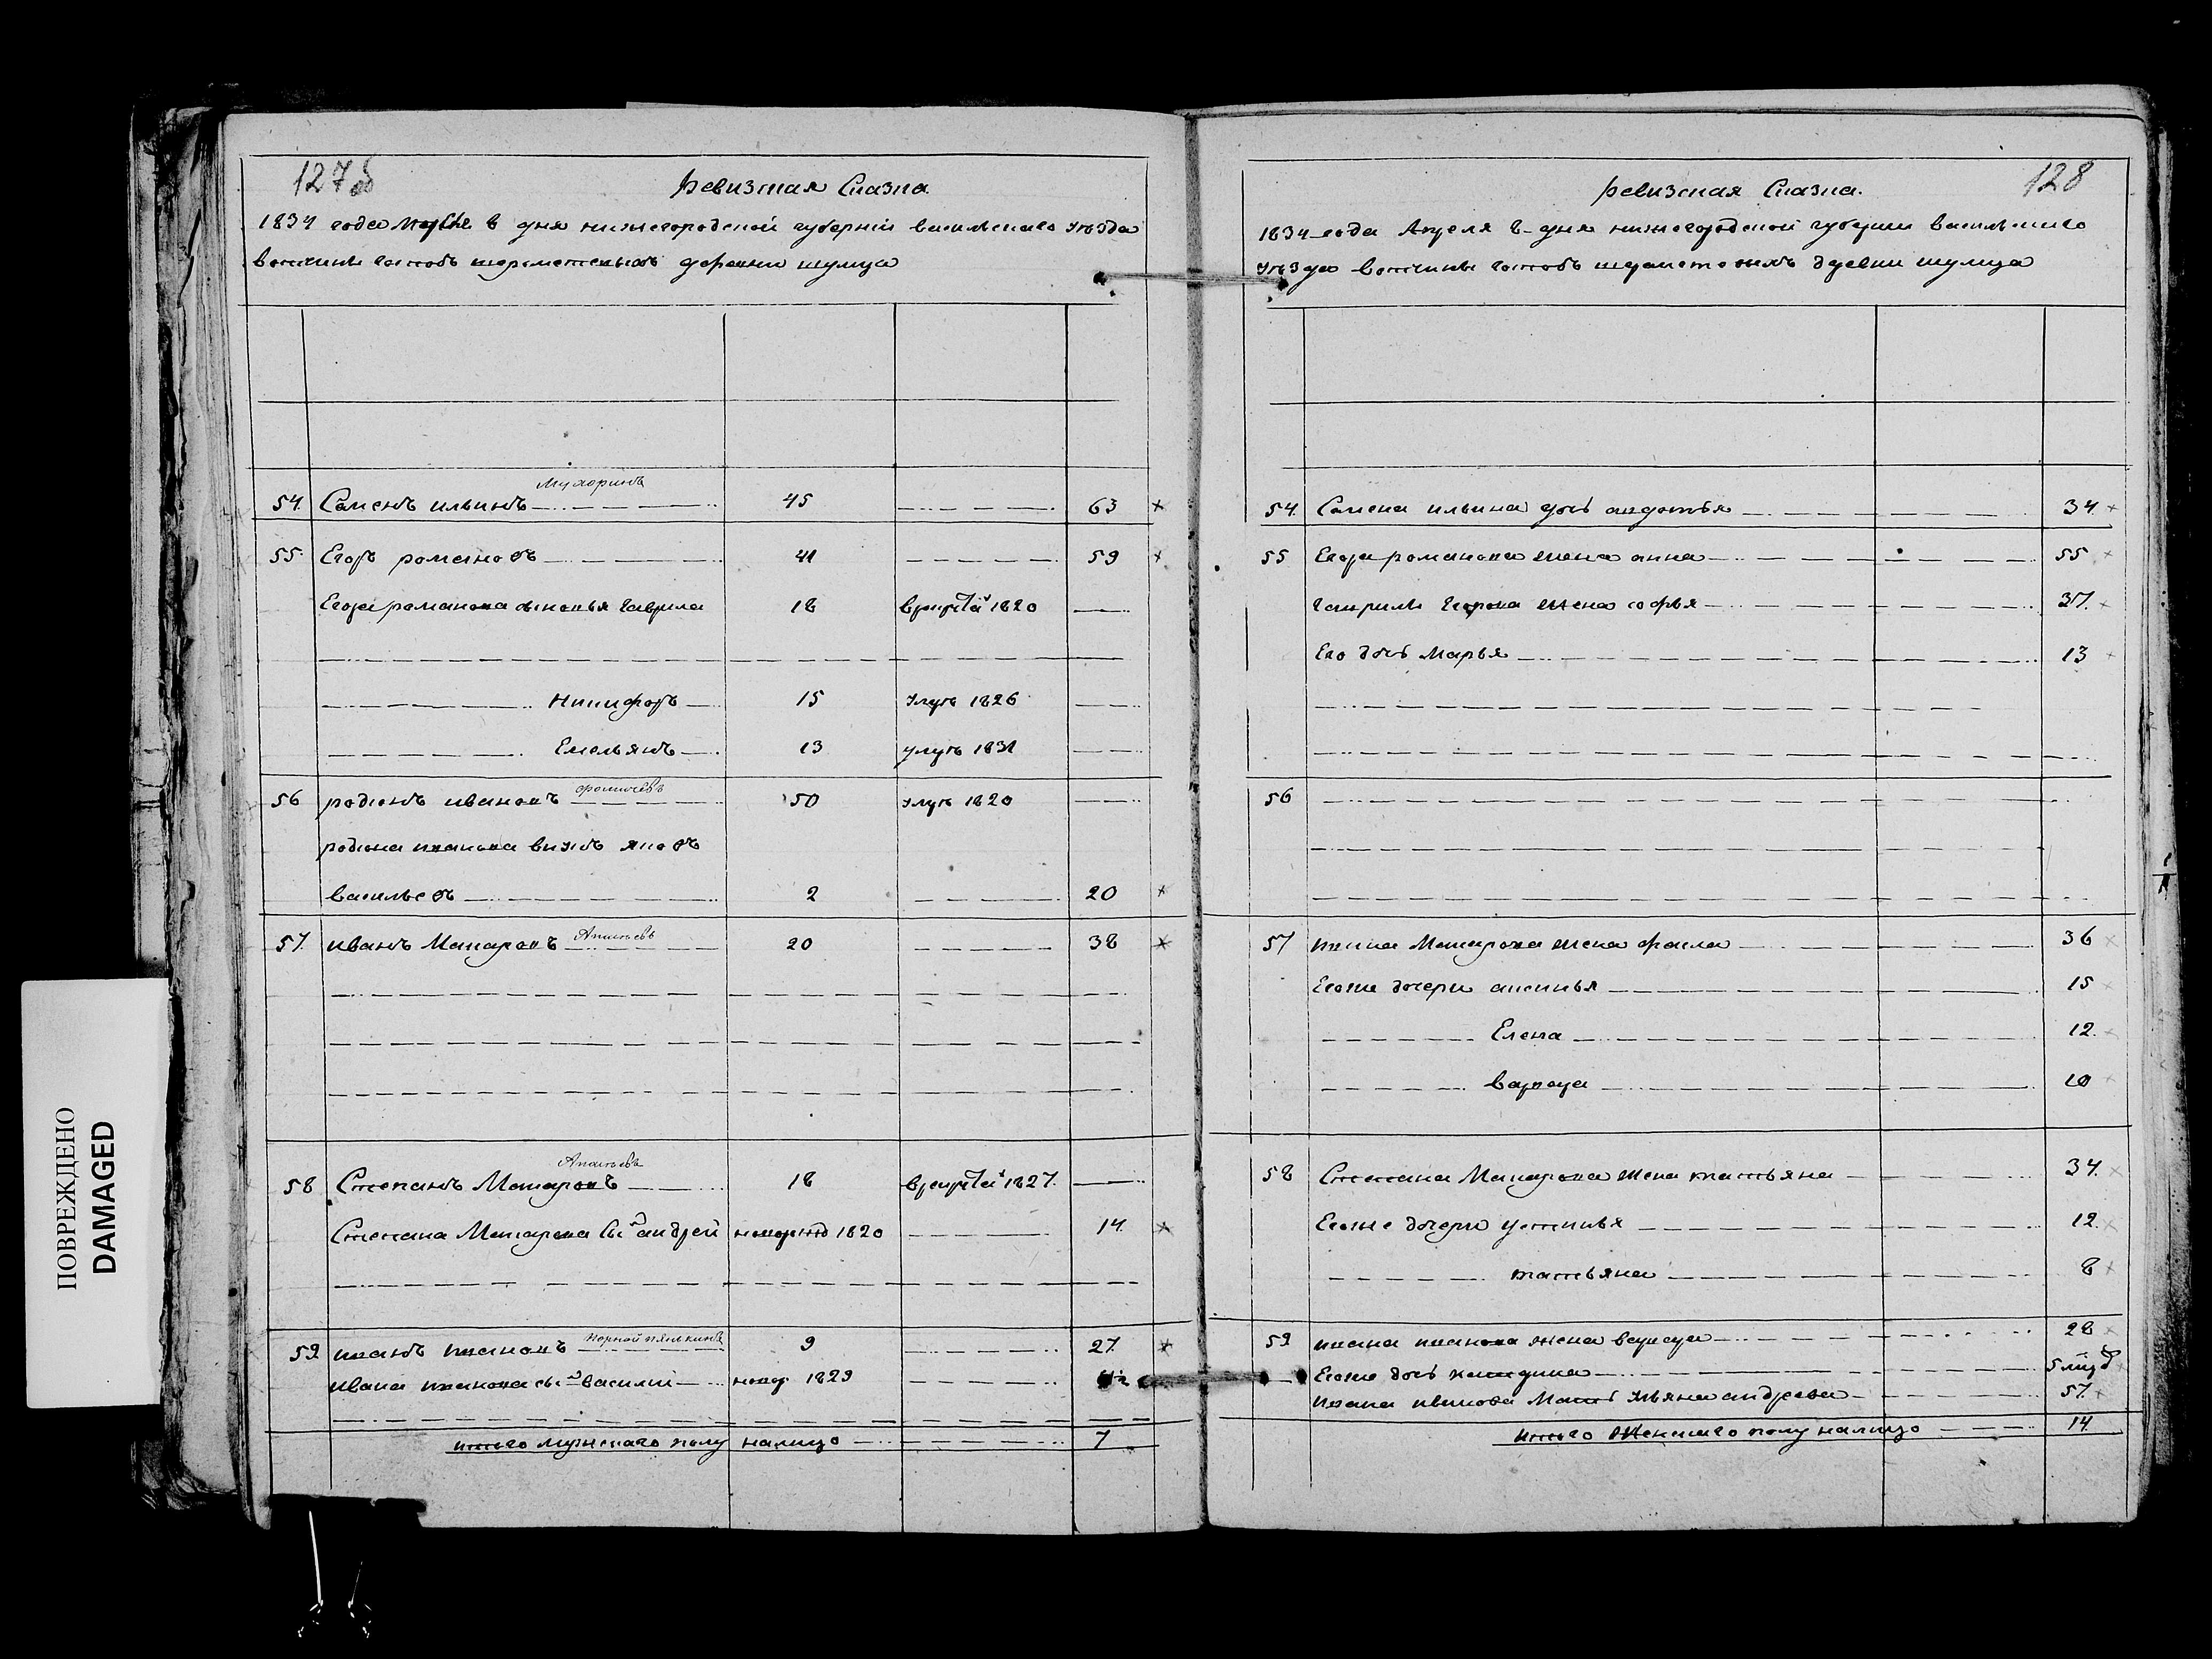 127об
Ревизская Сказка
1834 года дня нижегородской губернии васильскаго уезда
вотчины графовъ шереметевыхъ деревни шумца
Мухоринъ
54. Семенъ ильинъ 45 63 ×
55. Егоръ романовъ 41 59 ×
Егора романова сыновья гаврила 18 в рекруты 1820
Никифоръ 15 умре 1826
Емельянъ 13 умре 1831
Фомичевъ
56 родионъ ивановъ 50 умре 1820
родиона иванова внукъ яковъ
васильевъ 2 20 ×
57. иванъ Макаровъ 20 38 ×
58 Степанъ Макаровъ 18 в рекруты 1827.
Степана Макарова сынъ андрей новорожд 1820 14. ×
59. иванъ ивановъ 9 27. ×
ивана иванова сынъ василий новор 1829
итого мужескаго полу налицо 7
128
ревизская Сказка.
1834 года Апреля дня нижегородской губернии васильскаго
уезда вотчины графовъ шереметевыхъ древни шумца
54. Семена ильина дочь авдотья 34. ×
55 Егора романова жена анна 55 ×
гаврилы Егорова жена софья 37. ×
Его дочь Марья 13 ×
56
57 ивана Макарова жена 36 ×
Егоже дочери аксинья 15 ×
Елена 12. ×
варвара 10 ×
58 Степана Макарова жена татьяна 34. ×
Егоже дочери устинья 12. ×
татьяна 8 ×
59. ивана иванова жена варвара 28 ×
Егоже дочь 5
ивана иванова Мать ульяна андреева 57. ×
итого женскаго полу налицо 14.
ПОВРЕЖДЕНО
DAMAGED